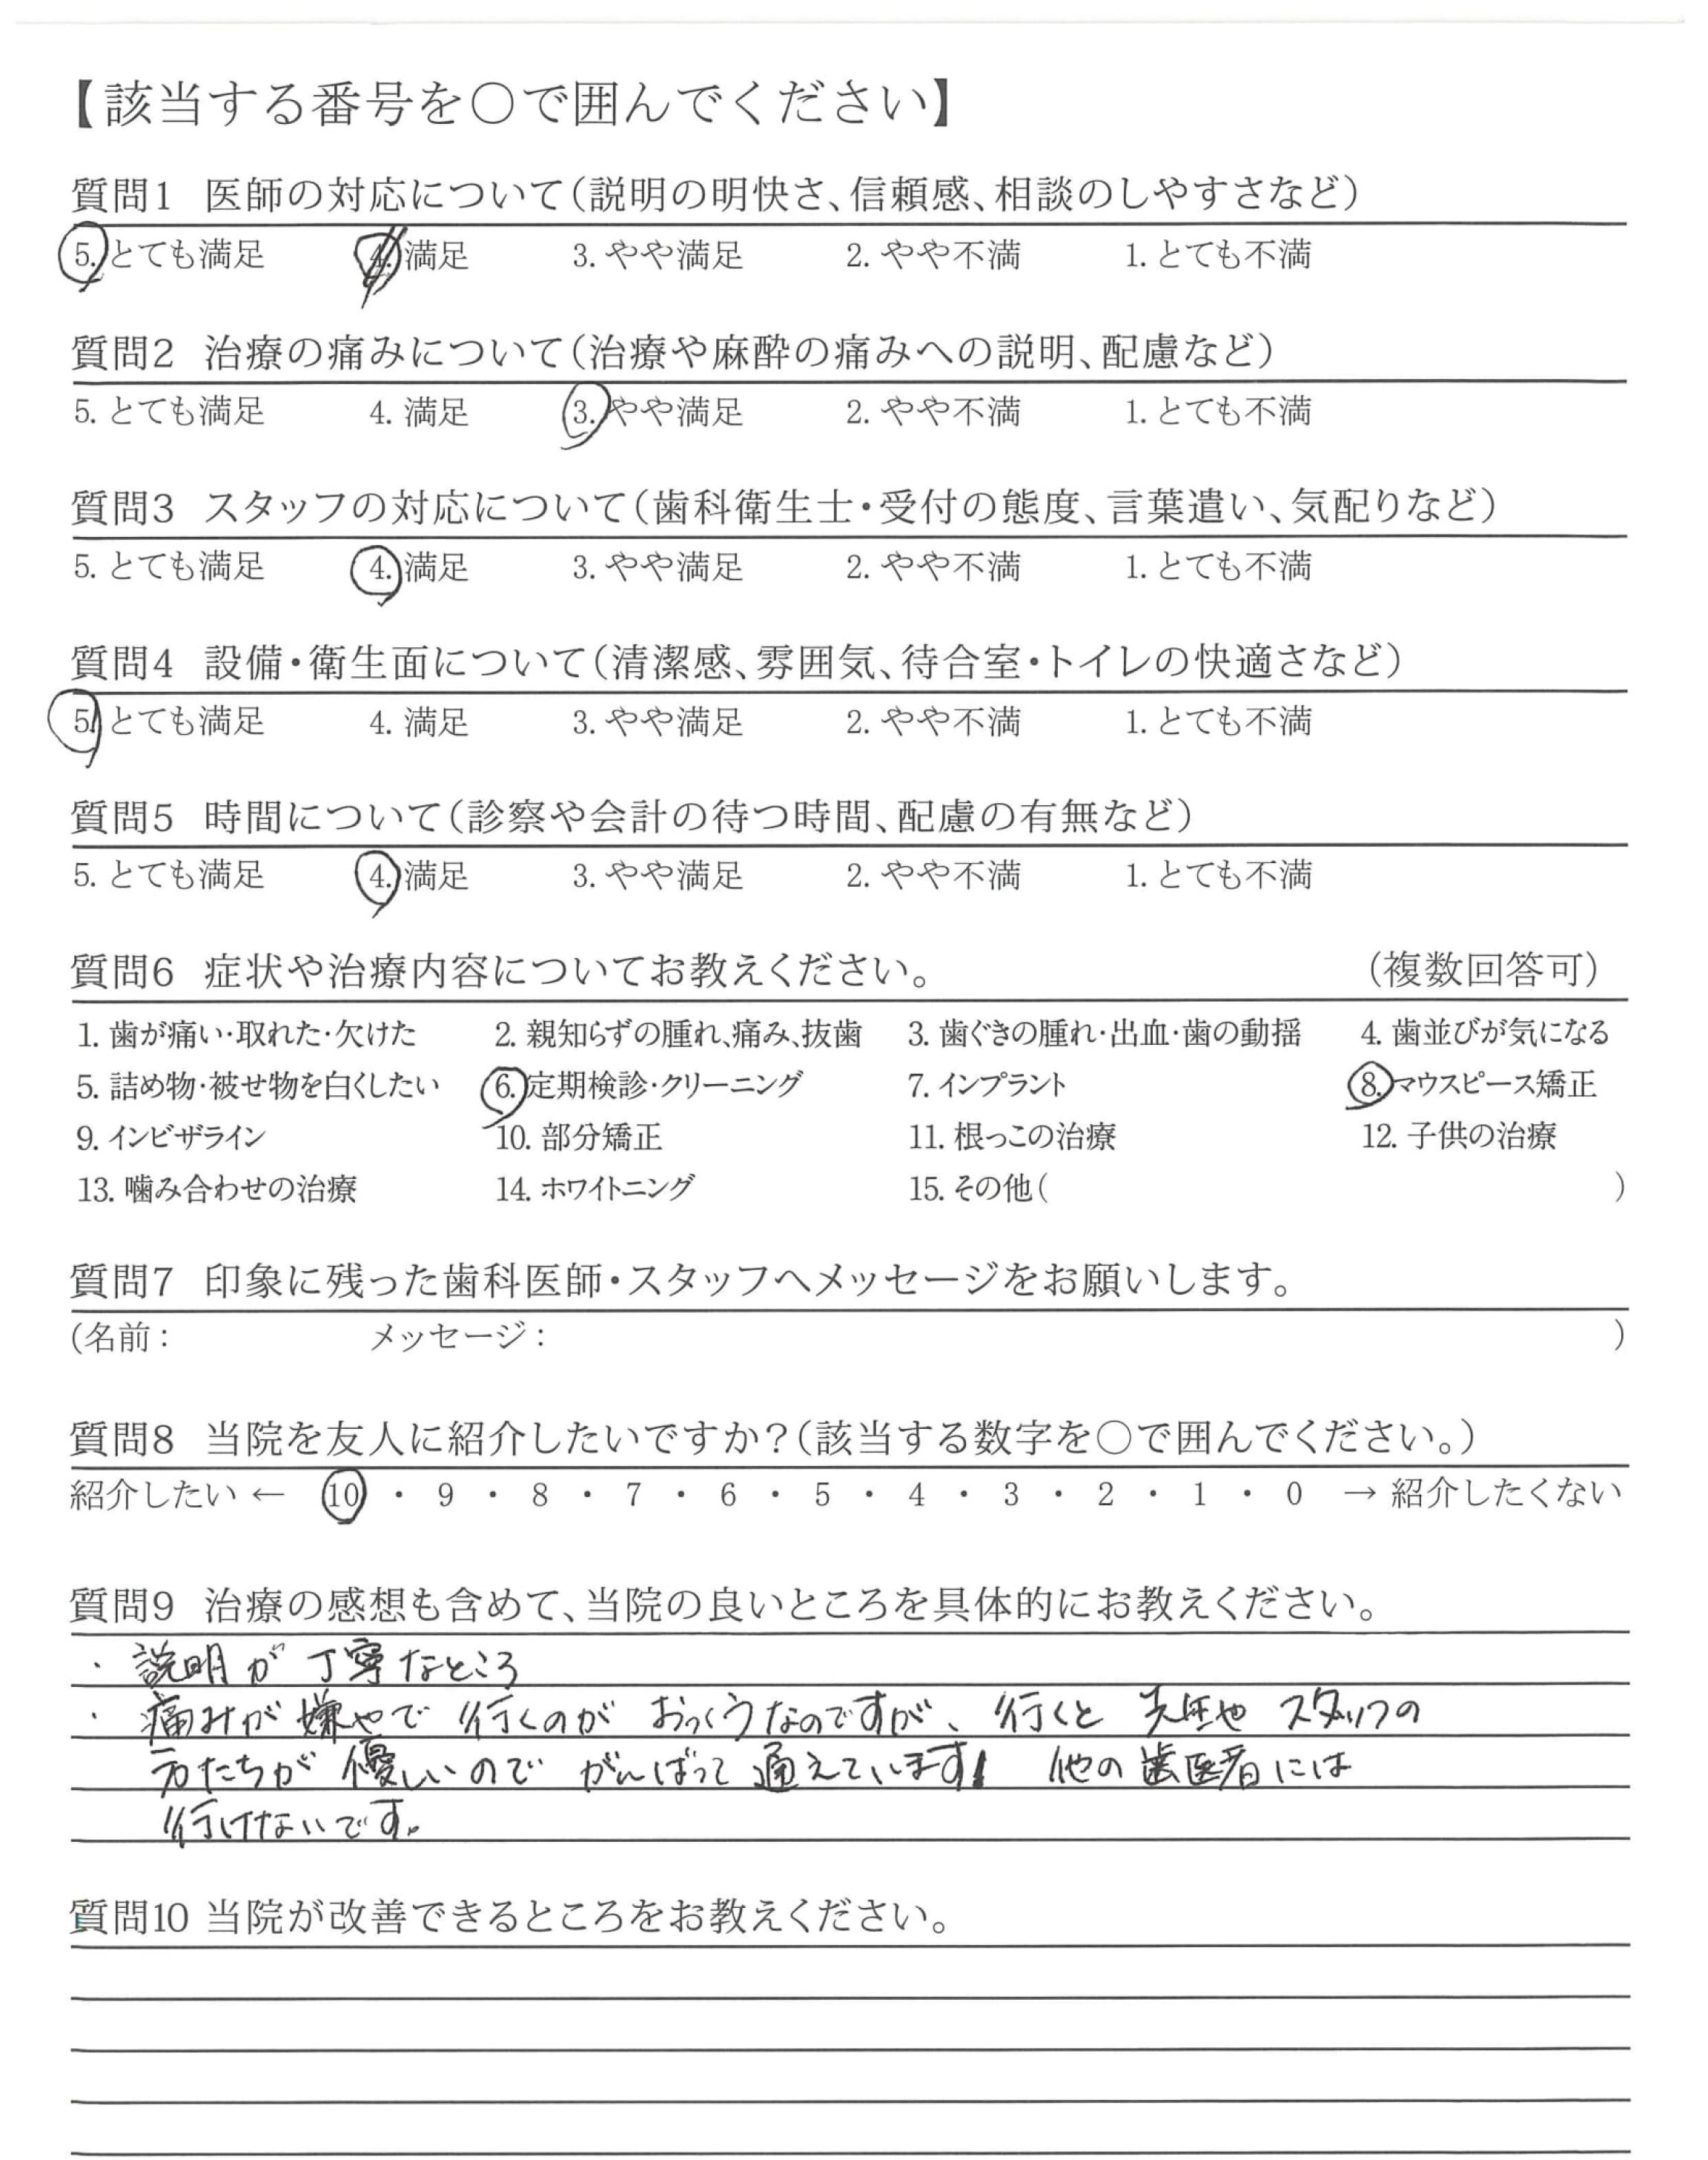 【該当する番号を○で囲んでください】
質問1 医師の対応について(説明の明快さ、信頼感、相談のしやすさなど)
5. とても満足 4. 満足 3. やや満足 2. やや不満 1. とても不満
質問2 治療の痛みについて(治療や麻酔の痛みへの説明、配慮など)
5. とても満足 4. 満足 3. やや満足 2. やや不満 1. とても不満
質問3 スタッフの対応について(歯科衛生士・受付の態度、言葉遣い、気配りなど)
5. とても満足 4. 満足 3. やや満足 2. やや不満 1. とても不満
質問4 設備・衛生面について(清潔感、雰囲気、待合室・トイレの快適さなど)
5. とても満足 4. 満足 3. やや満足 2. やや不満 1. とても不満
質問5 時間について(診察や会計の待つ時間、配慮の有無など)
5. とても満足 4. 満足 3. やや満足 2. やや不満 1. とても不満
質問6 症状や治療内容についてお教えください。 (複数回答可)
1. 歯が痛い・取れた・欠けた 2. 親知らずの腫れ、痛み、抜歯 3. 歯ぐきの腫れ・出血・歯の動揺 4. 歯並びが気になる
5. 詰め物・被せ物を白くしたい 6. 定期検診・クリーニング 7. インプラント 8. マウスピース矯正
9. インビザライン 10. 部分矯正 11. 根っこの治療 12. 子供の治療
13. 噛み合わせの治療 14. ホワイトニング 15. その他( )
質問7 印象に残った歯科医師・スタッフへメッセージをお願いします。
(名前: メッセージ: )
質問8 当院を友人に紹介したいですか?(該当する数字を○で囲んでください。)
紹介したい ← 10 ・ 9 ・ 8 ・ 7 ・ 6 ・ 5 ・ 4 ・ 3 ・ 2 ・ 1 ・ 0 → 紹介したくない
質問9 治療の感想も含めて、当院の良いところを具体的にお教えください。
・ 説明が丁寧なところ
・ 痛みが嫌やで行くのがおっくうなのですが、行くと先生やスタッフの
方たちが優しいのでがんばって通えています! 他の歯医者には
行けないです。
質問10 当院が改善できるところをお教えください。